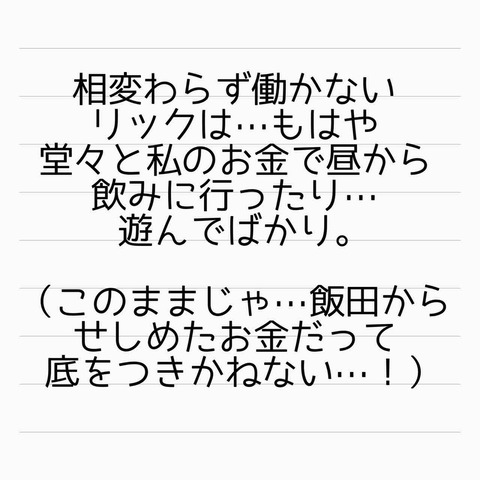 相変わらず働かない
リックは…もはや
堂々と私のお金で昼から
飲みに行ったり…
遊んでばかり。
（このままじゃ…飯田から
せしめたお金だって
底をつきかねない…！）